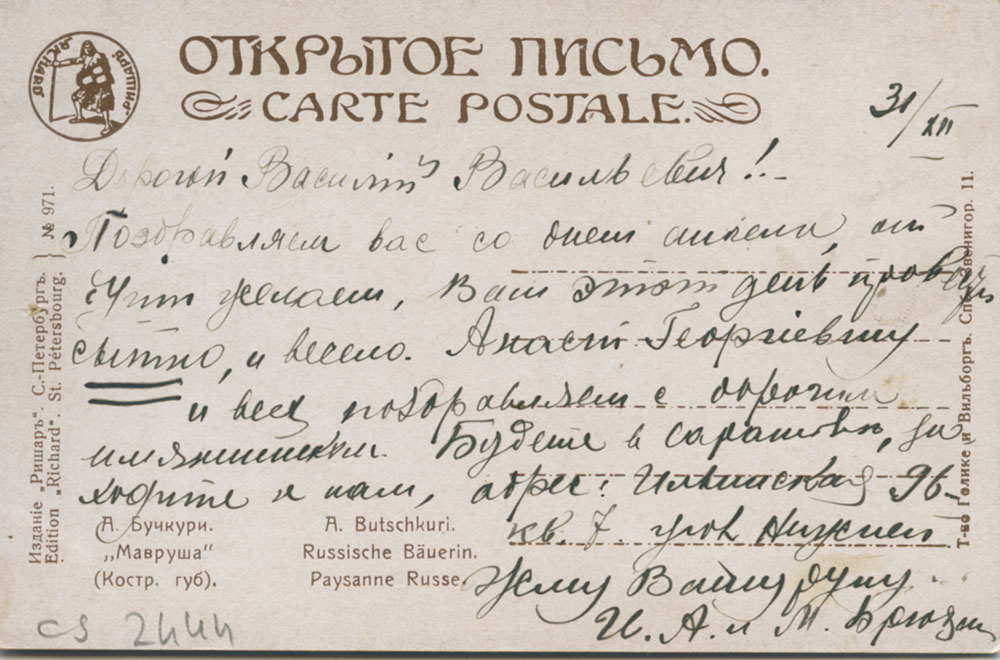 ОТКРЫТОЕ ПИСЬМО.
CARTE POSTALE.
31/XII
Дорогой Василiй Васильевич!!-
Поздравляем вас со днем ангела, от
души желаем, Вам этот день
сытно, и весело. Георгiевну
и всех поздравляем с дорогим
имянинником. Будете в саратове, за
ходите к нам, адрес: Ильинская 96-
кв. 7. угол
Жму Вашу руку
И. А. и М.
А. Бучкури.
„Мавруша“
(Костр. губ).
A. Butschkuri.
Russische Bäuerin.
Paysanne Russe.
Изданiе „Ришаръ“. С.-Петербургъ.
Edition „Richard“. St. Pétersbourg.
№ 971.
Т-во Голике и Вильборгъ. Спб. Звенигор. 11.
CS 2444